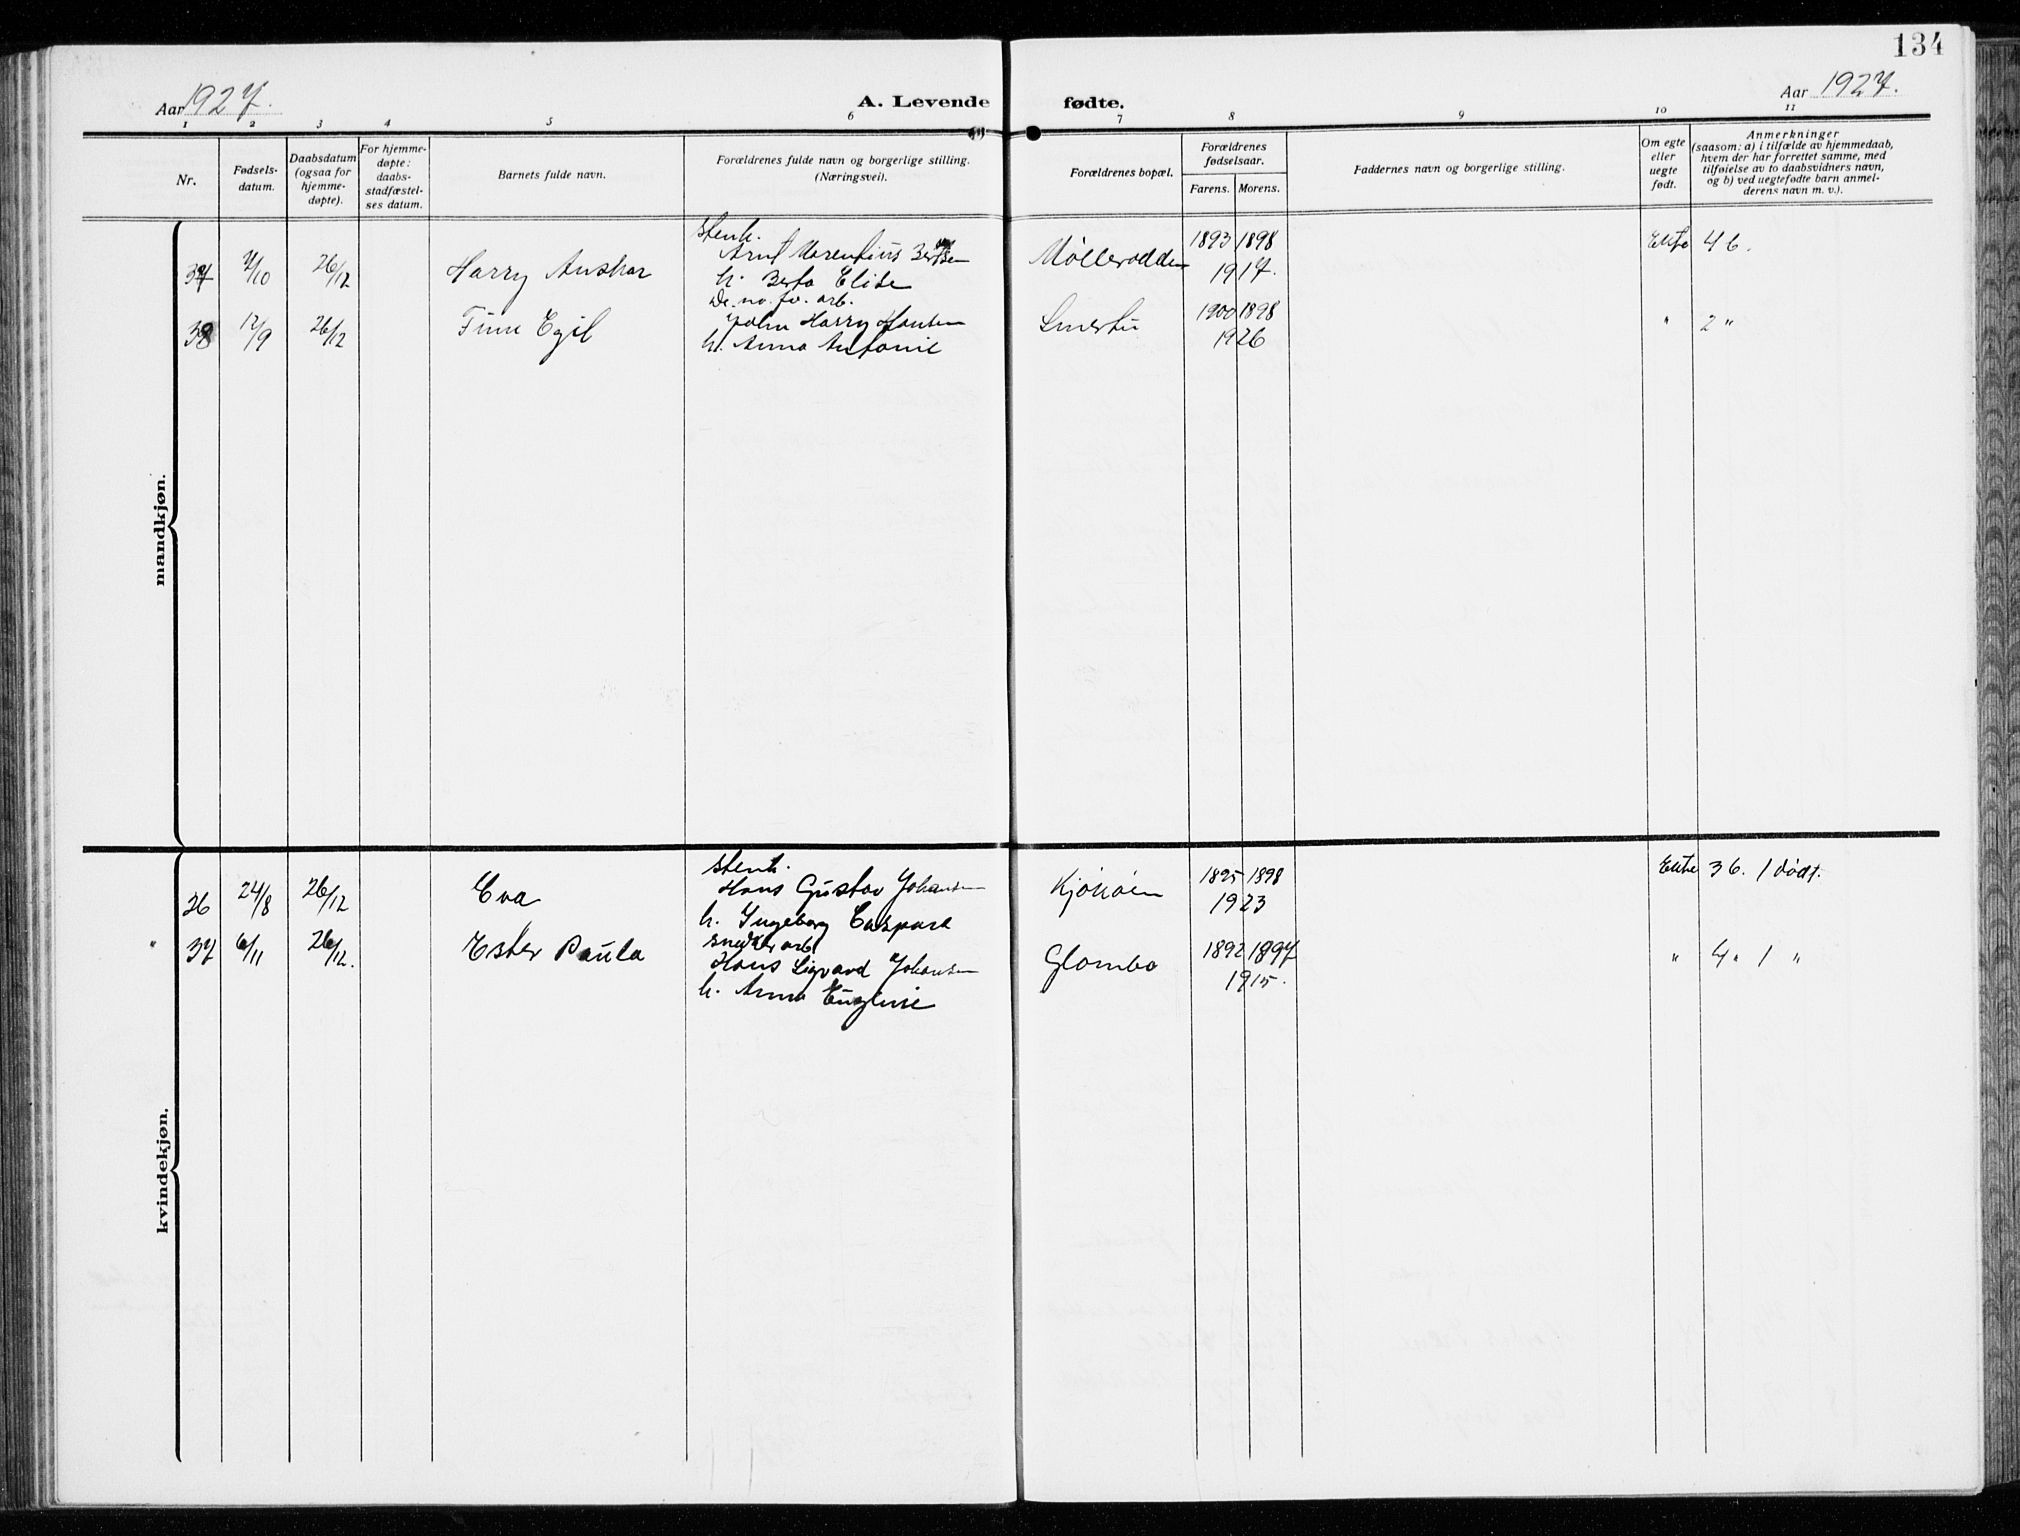 134
Aar 1927.
A. Levende fødte.
Aar 1927.
1 2 3 4 5 6 7 8 9 10 11
Nr.
Fødsels-
datum.
Daabsdatum
(ogsaa for
hjemme-
døpte).
For hjemme-
døpte:
daabs-
stadfæstel-
ses datum.
Barnets fulde navn.
Forældrenes fulde navn og borgerlige stilling.
(Næringsvei).
Forældrenes bopæl.
Forældrenes
fødselsaar.
Farens. Morens.
Faddernes navn og borgerlige stilling.
Om egte
eller
uegte
født.
Anmerkninger
(saasom: a) i tilfælde av hjemmedaab,
hvem der har forrettet samme, med
tilføielse av to daabsvidners navn,
og b) ved uegtefødte barn anmel-
derens navn m. v.).
mandkjøn.
stenh.
37 7/10 26/12 Harry Anskar Arnt Marentius Møllerodden 1893 1898 Ekte 4 b.
h. Berta Elise 1917.
arb.
38 17/9 26/12 Finn Egil John Harry Hansen 1900 1898 " 2 "
h. Anna Antonie 1926
kvindekjøn.
stenh.
26 24/8 26/12 Eva Hans Gustav Johansen Kjøkøen 1895 1898 Ekte 3 b. 1 dødt.
h. Ingeborg Caspara 1923
snekkerarb.
" 37 6/11 26/12. Ester Paula Hans Sigvard Johansen Glombo 1892 1897 " 4 " 1 "
h. Anna Eugenie 1915.